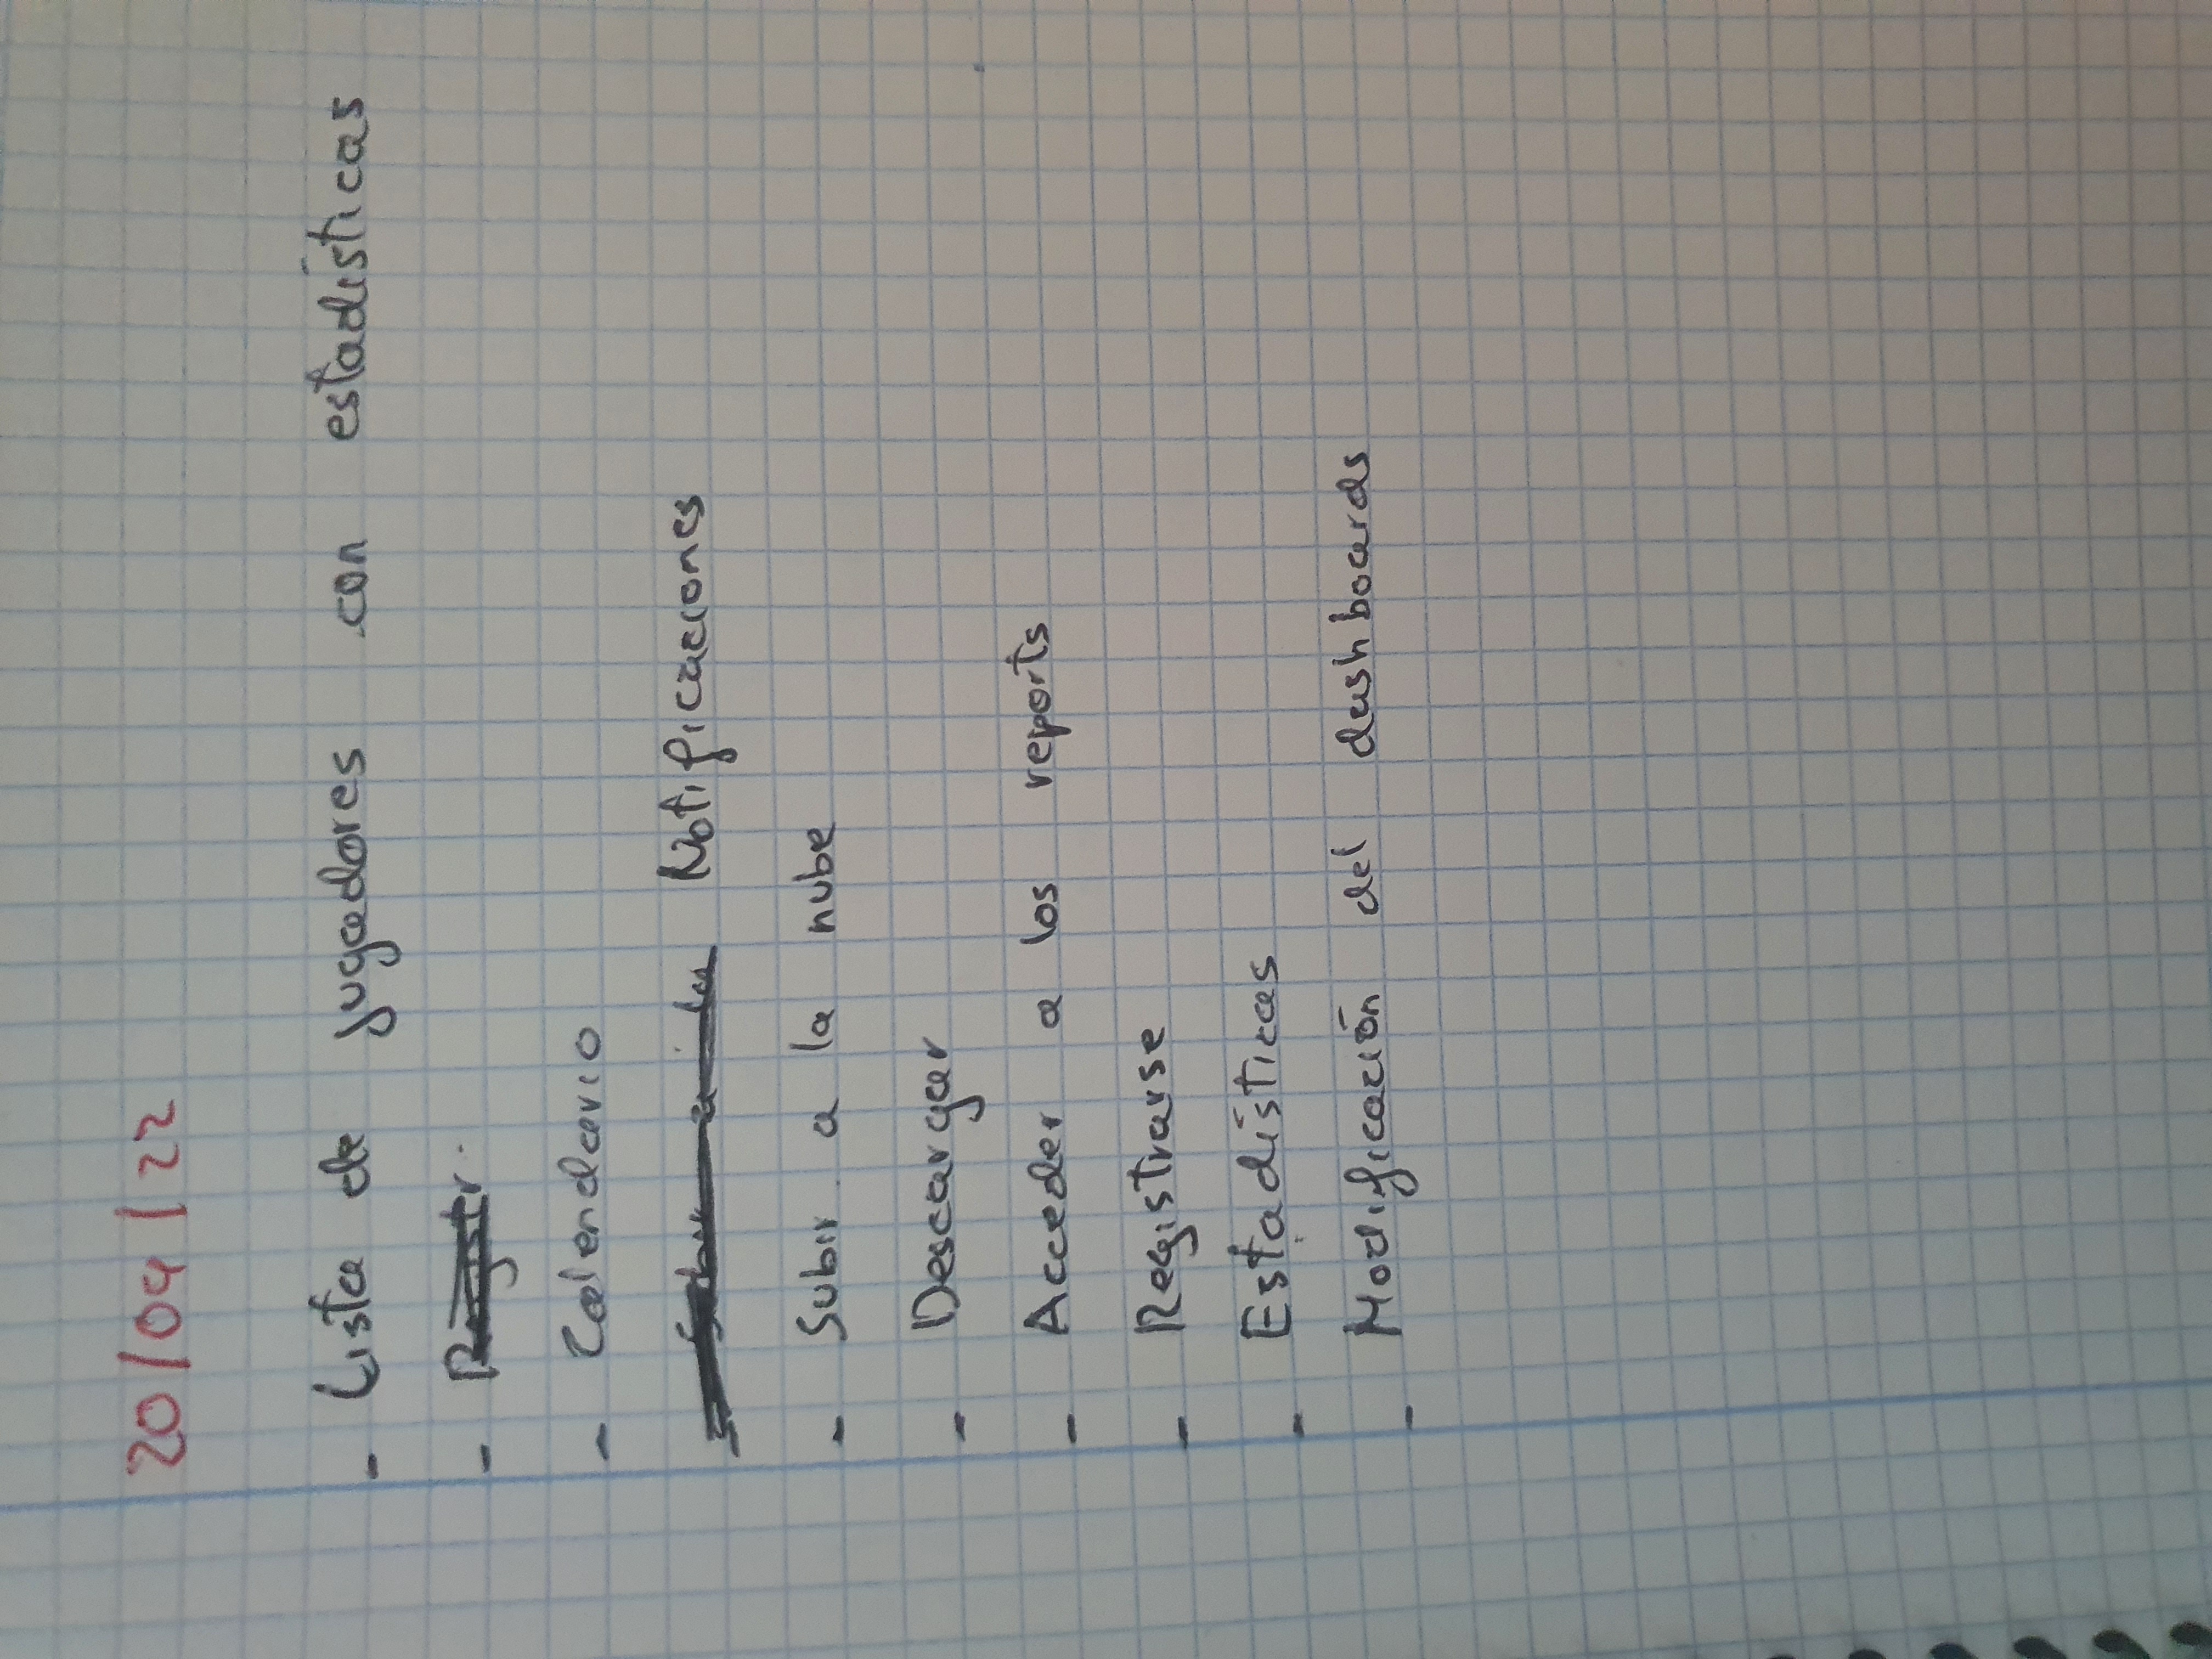 20/04/22
- Lista de jugadores con estadísticas
- Registr
- Calendario
- Subir a la Notificaciones
- Subir a la nube
- Descargar
- Acceder a los reports
- Registrarse
- Estadísticas
- Modificación del dashboards